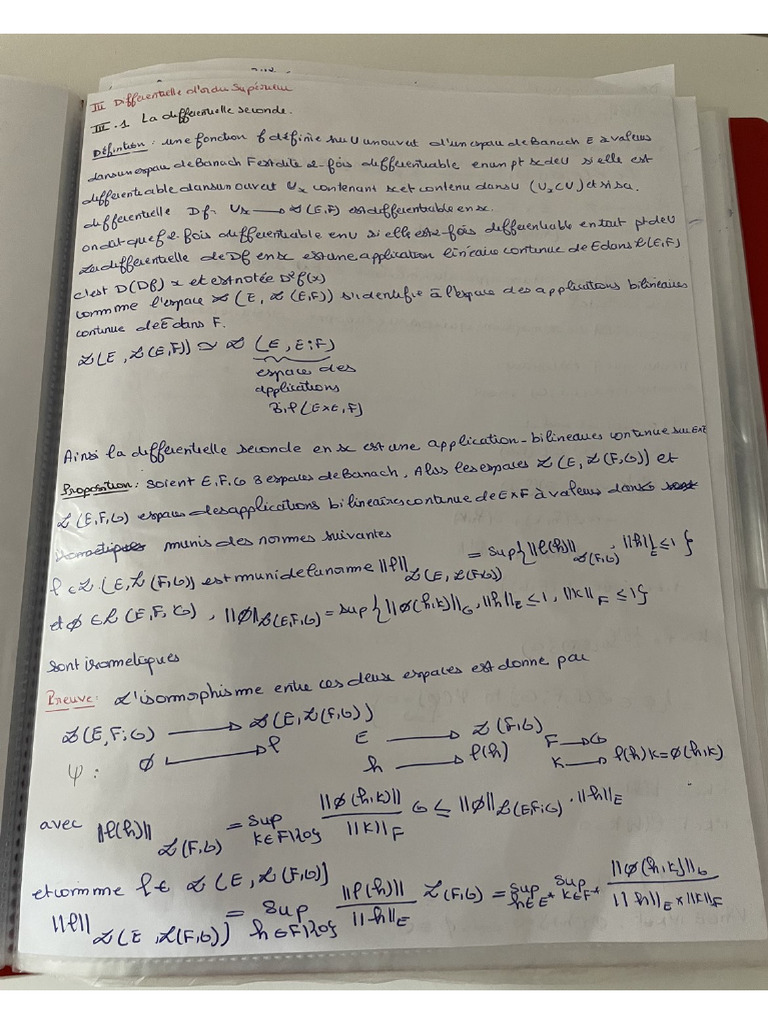 III Différentielle d'ordre Supérieur
III.1 La différentielle seconde.
Définition : une fonction f définie sur U un ouvert d'un espace de Banach E à valeurs
dans un espace de Banach F est dite 2-fois différentiable en un pt x de U si elle est
différentiable dans un ouvert Ux contenant x et contenu dans U (Ux⊂U) et si sa
différentielle Df : Ux → L(E,F) est différentiable en x.
on dit que f 2-fois différentiable en U si elle est 2-fois différentiable en tout pt de U
La différentielle de Df en x est une application linéaire continue de E dans L(E,F)
c'est D(Df) x et est notée D²f(x)
comme l'espace L(E, L(E,F)) s'identifie à l'espace des applications bilinéaires
continue de E dans F.
L(E, L(E,F)) ≃ L (E, E; F)
espace des
applications
Bil(E×E, F)
Ainsi la différentielle seconde en x est une application-bilineaires continue sur E×E
Proposition : soient E, F, G 3 espaces de Banach, Alors les espaces L(E, L(F,G)) et
L(E,F,G) espaces des applications bilineaires continue de E×F à valeurs dans G
munis des normes suivantes
l ∈ L(E, L(F,G)) est muni de la norme ||l||L(E, L(F,G)) = sup{||l(h)||L(F,G), ||h||E ≤ 1}
et ∅ ∈ L(E, F, G), ||∅||L(E,F,G) = sup{||∅(h,k)||G, ||h||E ≤ 1, ||k||F ≤ 1}
sont isométriques
Preuve: L'isomorphisme entre ces deux espaces est donne par
L(E,F;G) → L(E, L(F,G)) E → L(F,G) F → G
ψ : ∅ ↦ l h → l(h) k → l(h)k = ∅(h,k)
avec ||l(h)||L(F,G) = sup k∈F\{0} ||∅(h,k)||G / ||k||F ≤ ||∅||L(E,F;G) . ||h||E
et comme l ∈ L(E, L(F,G))
||l||L(E, L(F,G)) = sup h∈F\{0} ||l(h)||L(F,G) / ||h||E = sup h∈E* sup k∈F* ||∅(h,k)||G / ||h||E × ||k||F